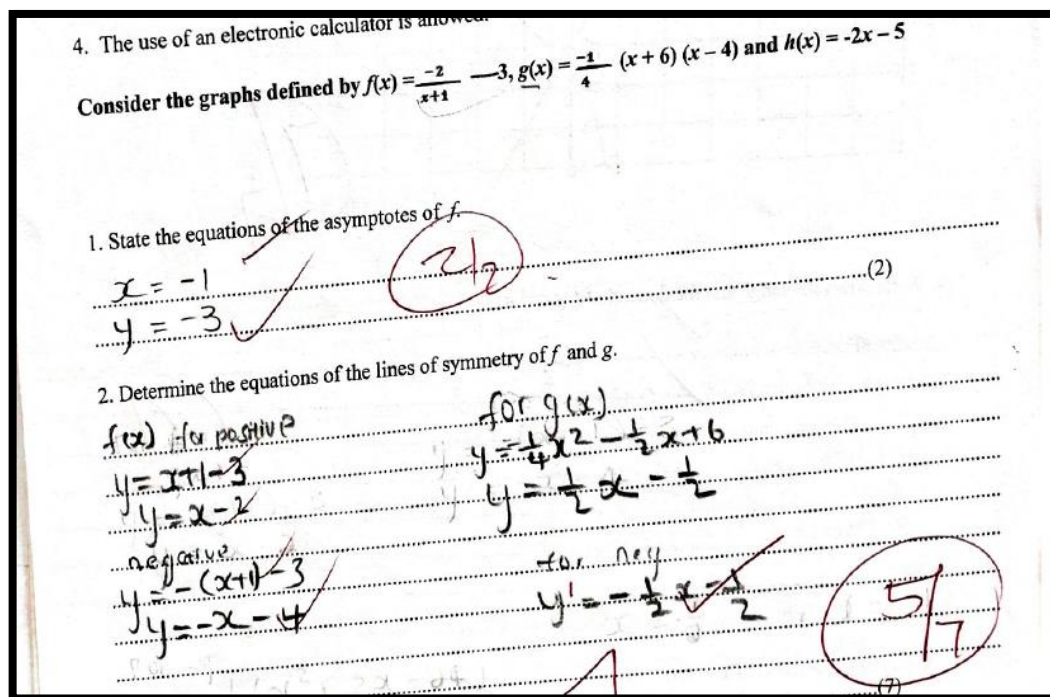 4. The use of an electronic calculator is allowed.
Consider the graphs defined by f(x) = -2/x+1 —3, g(x) = -1/4 (x + 6) (x – 4) and h(x) = -2x – 5
1. State the equations of the asymptotes of f.
x = -1
y = -3
2/2
(2)
2. Determine the equations of the lines of symmetry of f and g.
f(x) for positive
y = x+1-3
y = x-2
negative
y = -(x+1)-3
y = -x-4
for g(x)
y = -1/4x² - 1/2x+6
y = 1/2x - 1/2
for neg
y' = -1/2x - 1/2
5/7
(7)